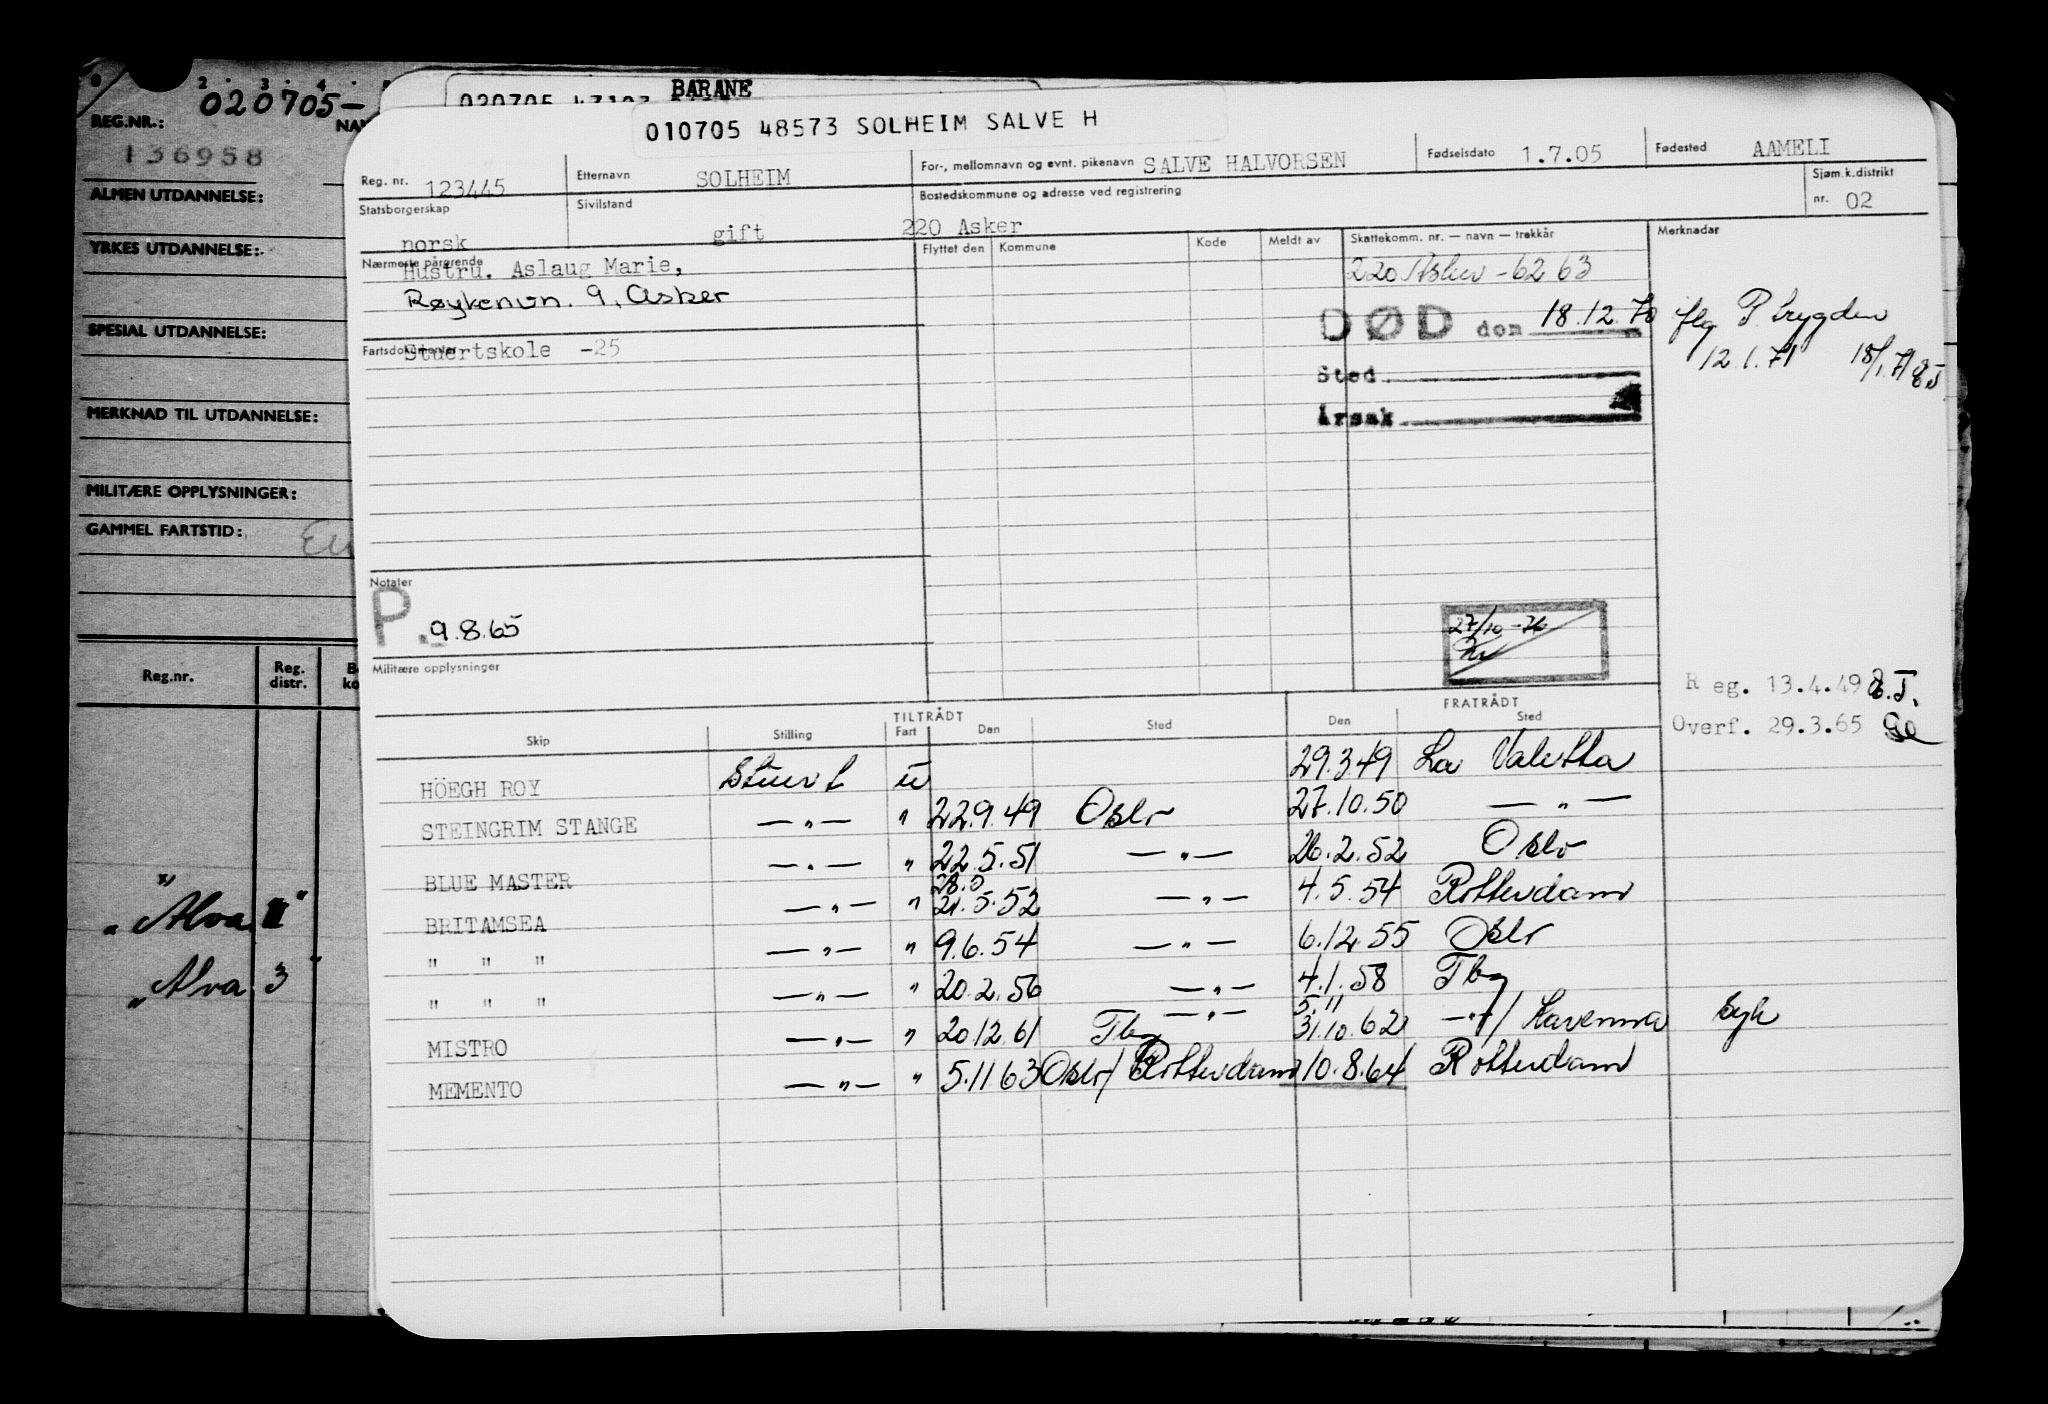 2 3 4
020705-
REG.NR.:
136958
ALMEN UTDANNELSE:
YRKES UTDANNELSE:
SPESIAL UTDANNELSE:
MERKNAD TIL UTDANNELSE:
MILITÆRE OPPLYSNINGER:
GAMMEL FARTSTID:
Reg.nr. Reg. distr.
"Alva II"
"Alva 3"
BARANE
010705 48573 SOLHEIM SALVE H
Reg. nr. 123445 Etternavn SOLHEIM For-, mellomnavn og evnt. pikenavn SALVE HALVORSEN Fødselsdato 1.7.05 Fødested AAMELI
Statsborgerskap norsk Sivilstand gift Bostedskommune og adresse ved registrering 220 Asker Sjøm.k.distrikt nr. 02
Nærmeste pårørende Flyttet den Kommune Kode Meldt av Skattekomm. nr. — navn — trekkår Merknader
Hustru. Aslaug Marie,
220 Asker -62 63
Røykenvn. 9, Asker
DØD den 18.12.70 flg P. trygden
12.1.71 18/1.71
Sted
Årsak
Fartsdokumenter
Stuertskole -25
Notater
P. 9.8.65
27/10-76
Militære opplysninger
Reg. 13.4.49
Overf. 29.3.65
TILTRÅDT FRATRÅDT
Skip Stilling Fart Den Sted Den Sted
HÖEGH ROY Stuert u 29.3.49 La Valetta
STEINGRIM STANGE —"— " 22.9.49 Oslo 27.10.50 —"—
BLUE MASTER —"— " 22.5.51 —"— 26.2.52 Oslo
28.5
BRITAMSEA —"— " 21.5.52 —"— 4.5.54 Rotterdam
" " " —"— " 9.6.54 —"— 6.12.55 Oslo
" " " —"— " 20.2.56 —"— 4.1.58 Tbg
—"— 5.11
MISTRO —"— " 20.12.61 Tbg 31.10.62 —"—/ Ravenna syk
MEMENTO —"— " 5.11.63 Oslo/Rotterdam 10.8.64 Rotterdam